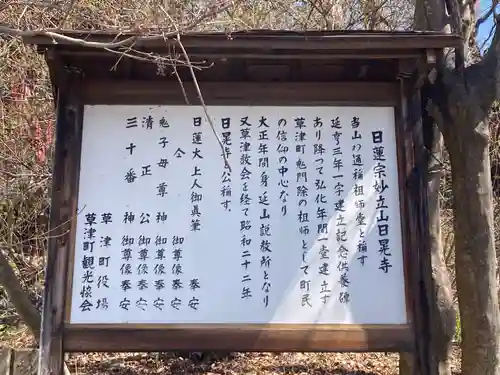 日蓮宗妙立山日晃寺
当山は通称祖師堂と稱す
延亨三年一宇建立記念供養碑
あり降つて弘化年間一堂建立す
草津町鬼門除の祖師として町民
の信仰の中心なり
大正年間身延山説教所となり
又草津教会を経て昭和二十二年
日晃寺と公稱す.
日蓮大上人御眞筆
仝 御尊像泰安
鬼子母尊神 御尊像泰安
清正公 御尊像泰安
三十番神 御尊像泰安
草津町役場
草津町観光協会